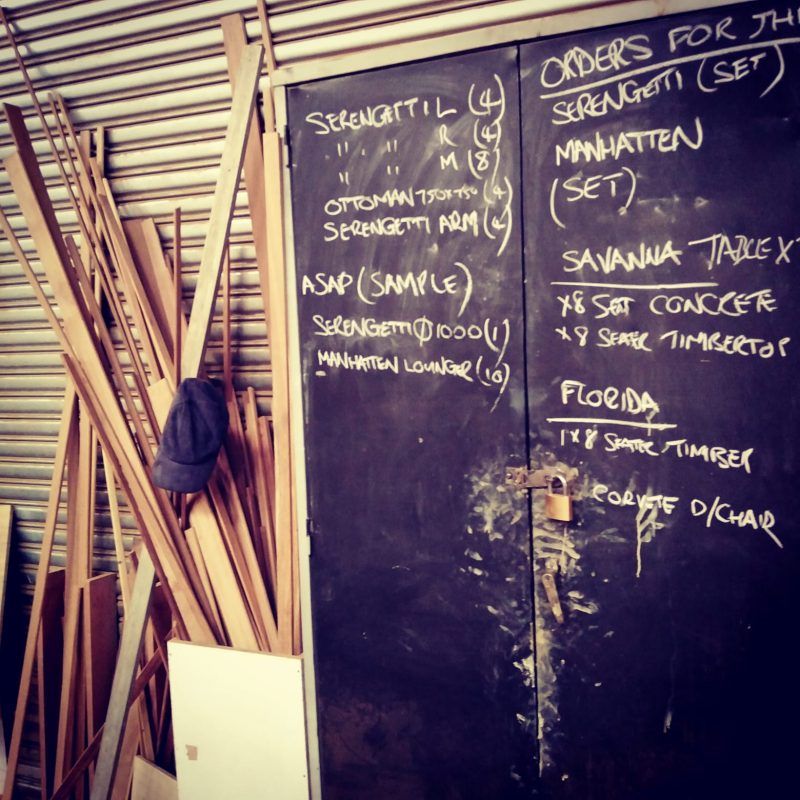 SERENGETTI L (4)
" " R (4)
" " M (8)
OTTOMAN 750X750 (4)
SERENGETTI ARM (4)
ASAP (SAMPLE)
SERENGETTI Ø1000 (1)
MANHATTEN LOUNGER (10)
ORDERS FOR
SERENGETTI (SET)
MANHATTEN
(SET)
SAVANNA TABLE X
X8 SEAT CONCRETE
X8 SEATER TIMBERTOP
FLORIDA
1X8 SEATER TIMBER
CORVETE D/CHAIR